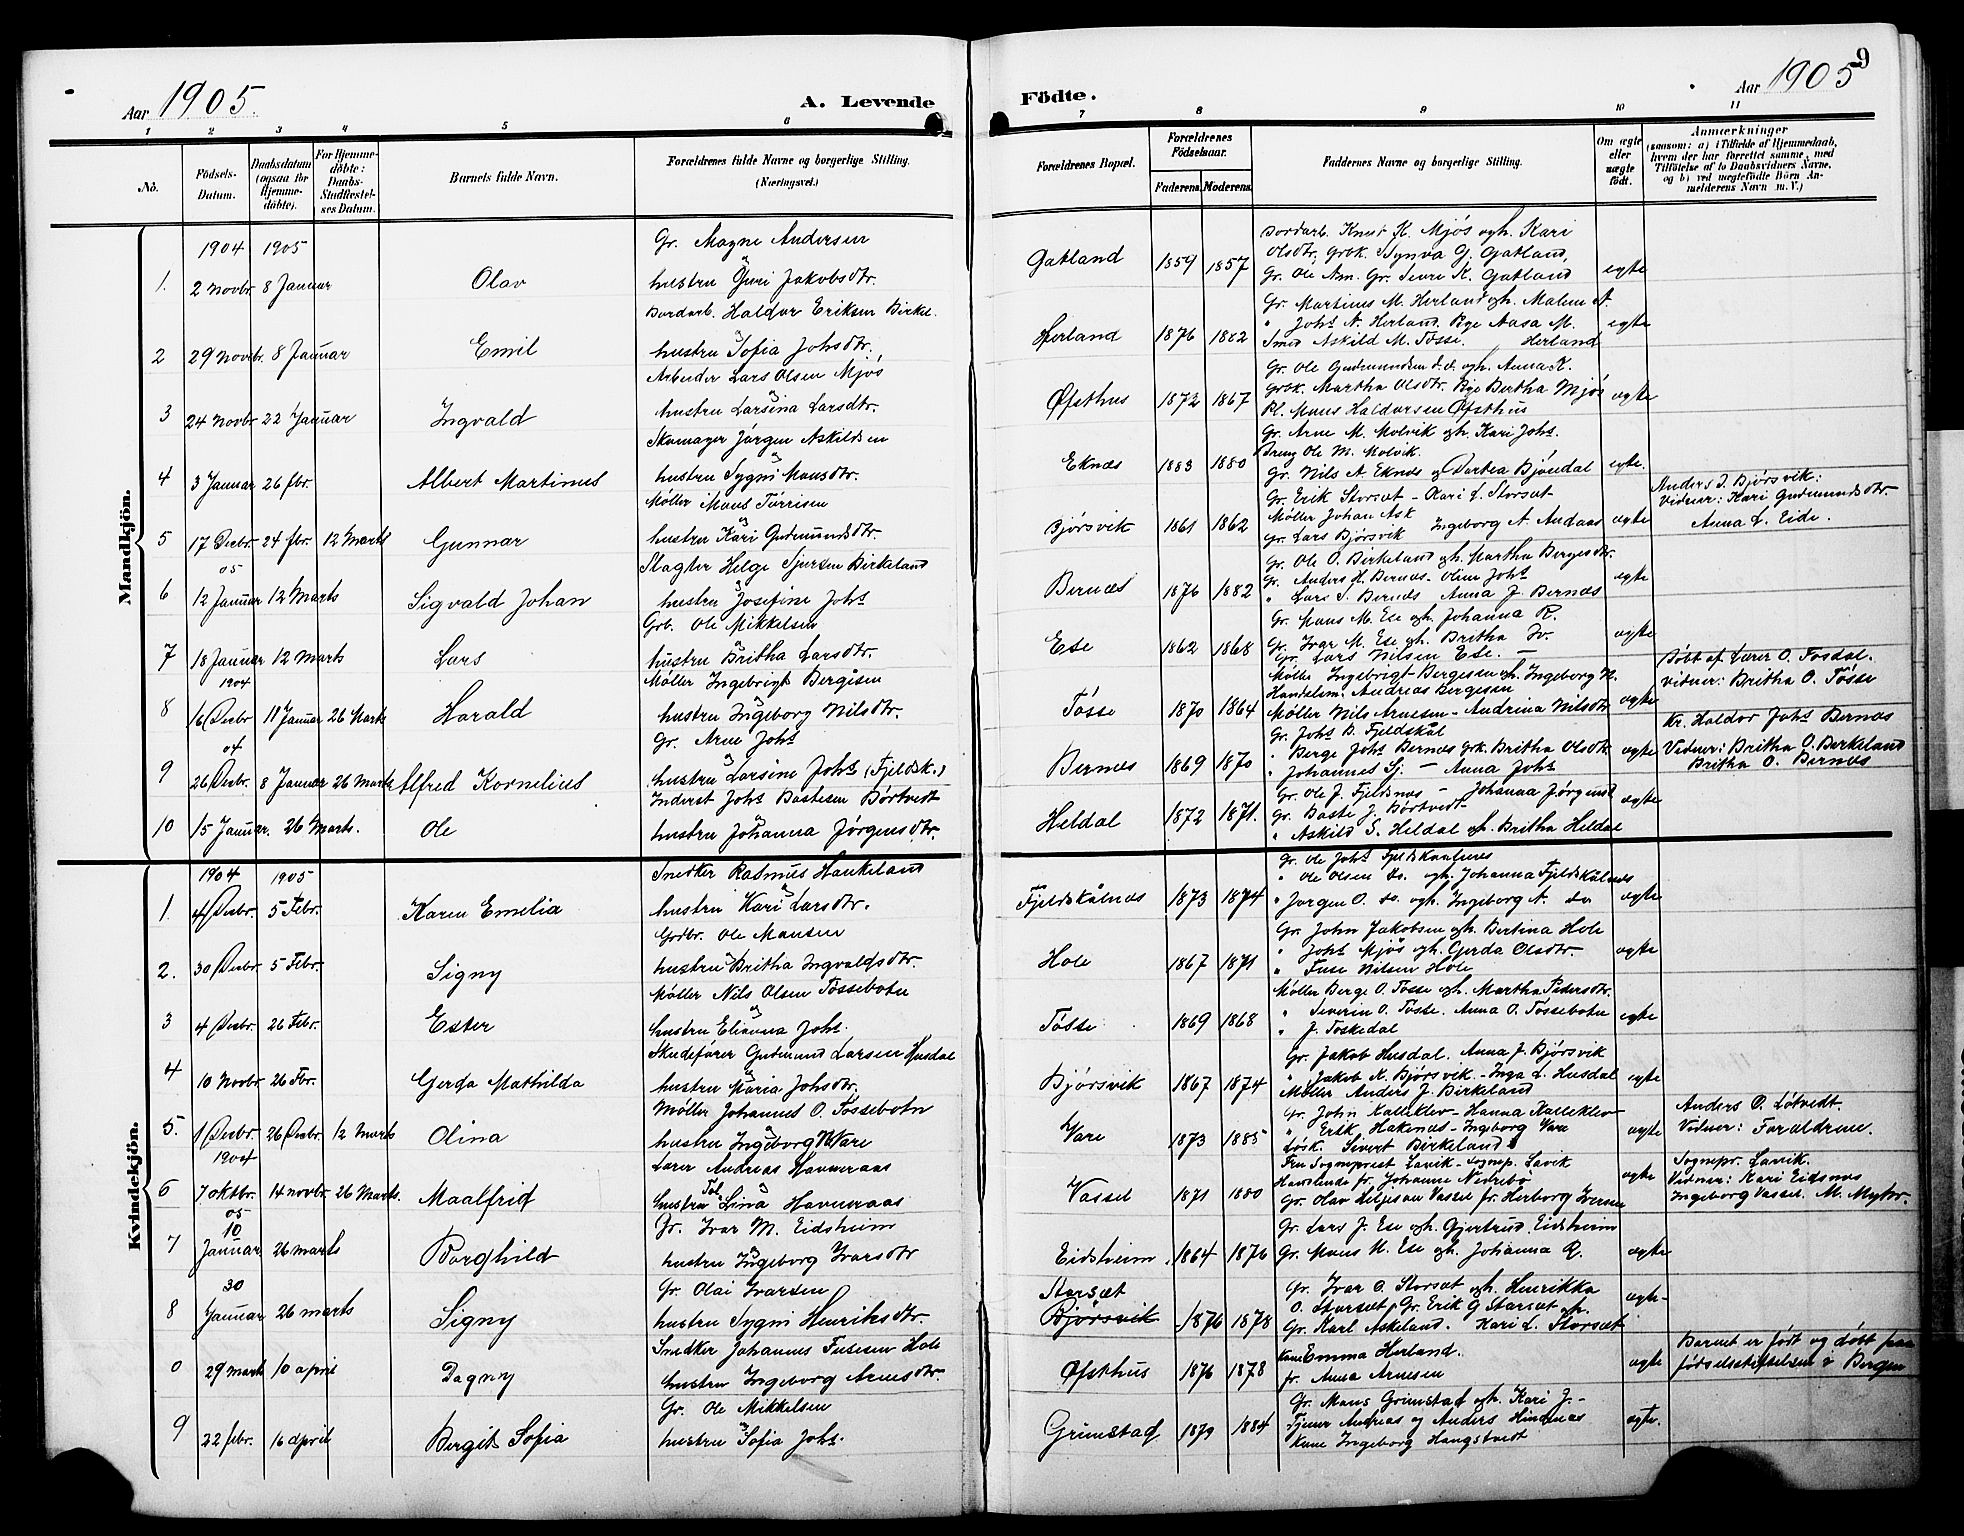 Aar 1905.
A. Levende Födte.
Aar 1905
9
1 2 3 4 5 6 7 8 9 10 11
No.
Födsels-Datum.
Daabsdatum (ogsaa for Hjemme-döbte).
For Hjemme-döbte: Daabs-Stadfæstel-ses Datum.
Barnets fulde Navn.
Forældrenes fulde Navne og borgerlige Stilling.
(Næringsvei.)
Forældrenes Bopæl.
Forældrenes Födselsaar.
Faderens. Moderens.
Faddernes Navne og borgerlige Stilling.
Om ægte eller uægte födt.
Anmærkninger
(saasom: a) i Tilfælde af Hjemmedaab, hvem der har forrettet samme, med Tilföielse af to Daabsvidners Navne, og b) ved uægtefödte Börn Anmelderens Navn m. V.)
Mandkjön.
1904 1905
1. 2 Novbr. 8 Januar Olav
Gr. Magne Andersen
hustru Guri Jakobsdtr.
Gatland 1859 1857
Bordarb. Knut K. Mjøs og h. Kari
Olsdtr. Grbk. Synva G. Gatland,
Gr. Ole Am. Gr. Sevri K. Gatland
egte
2 29 Novbr. 8 Januar Emil
Bordarb. Haldor Eriksen Birkel.
hustru Sofia Johsdtr.
Herland 1876 1882
Gr. Martinus M. Herland og h. Malene A.
" Johs A. Herland. Pge Aasa M.
Smed Askild M. Tosse. Herland
egte
3 24 Novbr 22 Januar Ingvald
Arbeider Lars Olsen Mjøs
hustru Larsina Larsdtr.
Øfsthus 1872 1867
Gr. Ole Gudmundsen s.s. og h. Anna K.
Grbk. Martha Olsdtr. Pge Bertha Mjøs
Pl. Mons Haldorsen Øfsthus
egte
4 3 Januar 26 fbr. Albert Martinus
Skomager Jørgen Askildsen
hustru Sygni Monsdtr.
Eknæs 1883 1880
Gr. Arne M. Molvik og h. Kari Johs.
Dreng Ole M. Molvik.
Gr. Nils A. Eknæs og Dortea Bjøndal
egte.
5 17 Decbr. 24 fbr. 12 Marts Gunnar
Møller Mons Torrisen
hustru Kari Gudmundsdtr.
Bjørsvik 1861 1862
Gr. Erik Storsæt - Kari L. Storsæt
Møller Johan Ask
Gr. Lars Bjørsvik Ingeborg A. Andaas
egte
Anders J. Bjørsvik:
Vidner: Kari Gudmundsdtr.
Anna L. Eide.
05
6 12 Januar 12 Marts Sigvald Johan
Slagter Helge Sjursen Birkeland
hustru Josefine Johs
Bernæs 1876 1882
Gr. Ole O. Birkeland og h. Martha Bergesdtr.
Gr. Anders H. Bernæs - Oline Johs
" Lars S. Bernæs Anna J. Bernæs
egte
7 18 Januar 12 Marts Lars
Grb. Ole Mikkelsen
hustru Britha Larsdtr.
Ese 1862 1868
Gr. Mons M. Ese og h. Johanna R.
Gr. Ivar M. Ese og h. Britha Iv.
Gr. Lars Nilsen Ese. -
egte
1904
8 16 Decbr 11 Januar 26 Marts Harald
Møller Ingebrigt Bergesen
hustru Ingeborg Nilsdtr.
Tosse 1870 1864
Mølle Ingebrigt Bergesen og h. Ingeborg N.
Handelsm. Andreas Bergesen
Møller Nils Arnesen - Andrina Nilsdtr
egte
Døbt af Lærer O. Fosdal.
Vidner: Britha O. Tosse
04
9 26 Decbr. 8 Januar 26 Marts Alfred Kornelius
Gr. Arne Johs
hustru Larsine Johs (Fjeldsk.)
Bernæs 1869 1870
Gr. Johs B. Fjeldskål
" Berge Johs Bernæs Grk. Britha Olsdtr
" Johannes Sj. - Anna Johs
egte
Kr. Haldor Johs Bernæs
Vidner: Britha O. Birkeland
Britha O. Bernæs
10 15 Januar. 26 Marts. Ole
Inderst Johs Bastesen Børtvedt
hustru Johanna Jørgensdtr.
Heldal 1872 1871.
Gr. Ole J. Fjeldsnæs - Johanna Jørgensd
Gr. Baste J. Børtvedt
" Askild S. Heldal og h. Britha Heldal
egte
Kvindekjön.
1904 1905
1. 4 Decbr. 5 Febr. Karen Emelia
Snedker Rasmus Haukeland
hustru Kari Larsdtr.
Fjeldskålnæs 1873 1874
Gr. Ole Johs Fjeldskaalnes
" Ole Olsen do. og h. Johanna Fjeldskålnæs
" Jørgen O. do. og h. Ingeborg A. do
egte
2. 30 Decbr. 5 Febr. Signy
Grdbr. Ole Monsen
hustru Britha Ingvaldsdtr.
Hole 1867 1871
Gr. John Jakobsen og h. Bertina Hole
" Johs Mjøs og h. Gerda Olsdtr.
" Fuse Nilsen Hole
egte
3 4 Decbr. 26 Febr. Ester
Møller Nils Olsen Tossebotn
hustru Elianna Johs.
Tosse 1869 1868
Møller Berge O. Tosse og h. Martha Pedersdtr.
" Severin O. Tosse. Anna O. Tossebotn
" J. Toskedal
egte
4 10 Novbr 26 Fbr. Gerda Mathilda
Skudefører Gudmund Larsen Husdal
hustru Maria Johsdtr.
Bjørsvik 1867 1874
Gr. Jakob Husdal. Anna J. Bjørsvik
" Jakob K. Bjørsvik - Inga L. Husdal
Møller Anders J. Birkeland
egte
5. 1 Decbr. 26 Decbr. 12 Marts Olina
Møller Johannes O. Tossebotn
hustru Ingeborg N. Vare
Vare 1873 1885
Gr. John Kalleklev - Hanna Kalleklev
" Erik Hakenæs - Ingeborg Vare
Løsk. Sivert Birkeland
egte
Anders O. Løtvedt.
Vidner: Foraldrene.
1904
6 7 Oktbr. 14 Novbr. 26 Marts. Maalfrid
Lærer Andreas Havneraas
hustru Lina Havneraas
Vassel 1871 1880
Fru Sogneprest Lavik - Sognep. Lavik
Handlende fr. Johanne Nevrebø
Gr. Olav Helgesen Vassel fr. Herborg Iversen
egte
Sognepr. Lavik.
Vidner: Kari Eidsnæs
Ingeborg Vassel. M. Mykr.
05
7 10 Januar 26 marts Borghild
Gr. Ivar M. Eidsheim
hustru Ingeborg Ivarsdtr
Eidsheim. 1864 1876
Gr. Lars J. Ese og h. Gjertrud Eidsheim
Gr. Mons M. Ese og h. Johanna R.
egte
8 30 Januar 26 marts Signy
Gr. Olai Ivarsen
hustru Sygni Henriksdtr.
Storsæt
Bjørsvik 1876 1878
Gr. Ivar O. Storsæt og h. Henrikka
O. Storsæt, Gr. Erik G Storsæt og h.
Gr. Karl Askeland. Kari L. Storsæt
egte
0 29 mart 10 april Dagny
Snedker Johannes Fusesen Hole
hustru Ingeborg Arnesdtr.
Øfsthus 1876 1878
Kone Emma Herland.
fr. Anna Arnesen
egte
Barnet er født og døbt paa
fødselsstiftelsen i Bergen
9 22 febr. 16 april Bergit Sofia
Gr. Ole Mikkelsen
hustru Sofia Johs.
Grimstad 1879 1884
Gr. Mons Grimstad og h. Kari J.
Tjener Andreas og Anders Hindenæs
Kone Ingeborg Haugstvedt
egte.